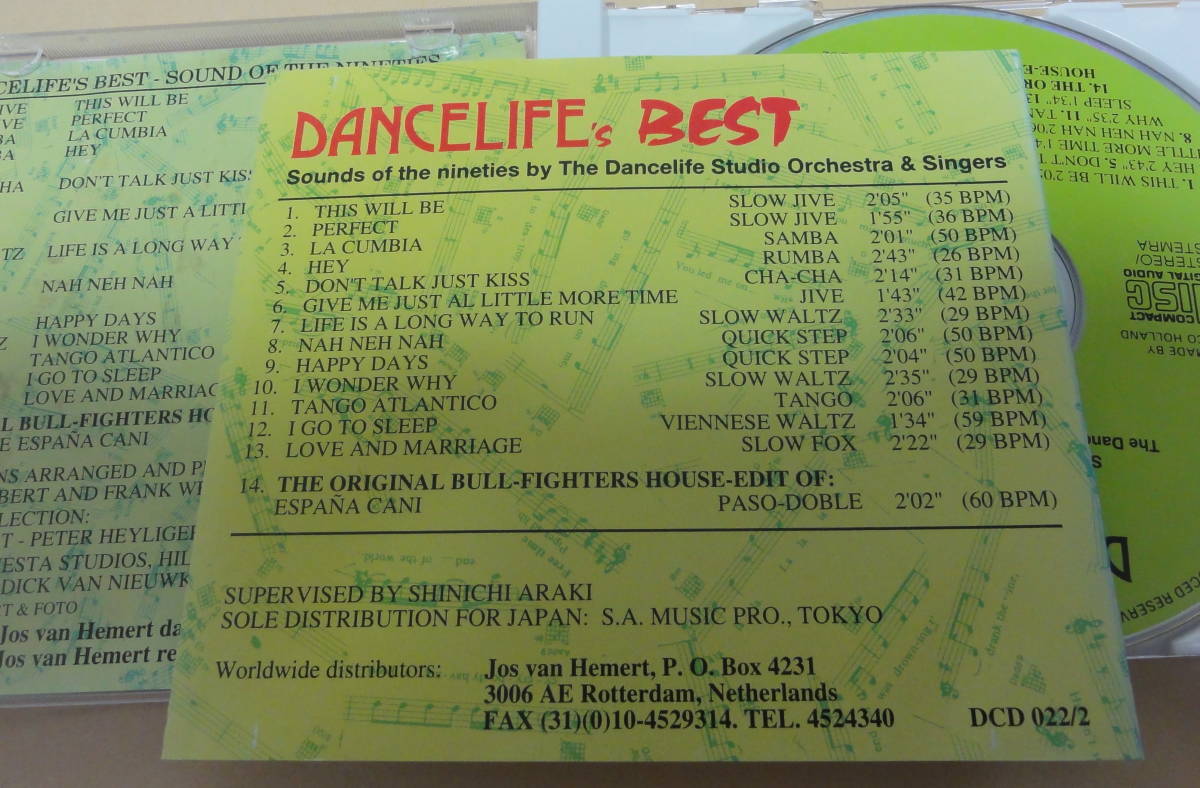 CELIFE'S BEST - SOUND OF THE NINETIES
THIS WILL BE
PERFECT
LA CUMBIA
HEY
DON'T TALK JUST KISS
GIVE ME JUST A LITTL
LIFE IS A LONG WAY
NAH NEH NAH
HAPPY DAYS
I WONDER WHY
TANGO ATLANTICO
I GO TO SLEEP
LOVE AND MARRIAGE
L BULL-FIGHTERS HOUS
E ESPAÑA CANI
NS ARRANGED AND PR
BERT AND FRANK WE
LECTION:
T - PETER HEYLIGER
ESTA STUDIOS, HIL
DICK VAN NIEUWK
RT & FOTO
Jos van Hemert da
Jos van Hemert re
DANCELIFE's BEST
Sounds of the nineties by The Dancelife Studio Orchestra & Singers
1. THIS WILL BE SLOW JIVE 2'05" (35 BPM)
2. PERFECT SLOW JIVE 1'55" (36 BPM)
3. LA CUMBIA SAMBA 2'01" (50 BPM)
4. HEY RUMBA 2'43" (26 BPM)
5. DON'T TALK JUST KISS CHA-CHA 2'14" (31 BPM)
6. GIVE ME JUST AL LITTLE MORE TIME JIVE 1'43" (42 BPM)
7. LIFE IS A LONG WAY TO RUN SLOW WALTZ 2'33" (29 BPM)
8. NAH NEH NAH QUICK STEP 2'06" (50 BPM)
9. HAPPY DAYS QUICK STEP 2'04" (50 BPM)
10. I WONDER WHY SLOW WALTZ 2'35" (29 BPM)
11. TANGO ATLANTICO TANGO 2'06" (31 BPM)
12. I GO TO SLEEP VIENNESE WALTZ 1'34" (59 BPM)
13. LOVE AND MARRIAGE SLOW FOX 2'22" (29 BPM)
14. THE ORIGINAL BULL-FIGHTERS HOUSE-EDIT OF:
ESPAÑA CANI PASO-DOBLE 2'02" (60 BPM)
SUPERVISED BY SHINICHI ARAKI
SOLE DISTRIBUTION FOR JAPAN: S.A. MUSIC PRO., TOKYO
Worldwide distributors: Jos van Hemert, P. O. Box 4231
3006 AE Rotterdam, Netherlands
FAX (31)(0)10-4529314. TEL. 4524340 DCD 022/2
HOUSE-E
14. THE OR
SLEEP 1'34" 13
WHY 2'35" 11. TAN
8. NAH NEH NAH 2'06
LITTLE MORE TIME 1'4
HEY 2'43" 5. DON'T
1. THIS WILL BE 2'05
STEMRA
STEREO/
DIGITAL AUDIO
COMPACT
DISC
MADE BY
CO HOLLAND
The Danc